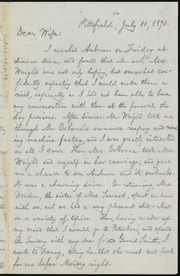 Pittsfield, July 10, 1870.
Dear Wife,
I reached Auburn on Friday at
dinner time, and found that Mr. and Mrs.
Wright are not only hoping, but somewhat con-
fidently expecting that I may be there to
rest, especially as I had not been able to have
any conversation with them at the funeral the
day previous. After dinner Mr. Wright took me
through Mr. Osborne's immense reaping and mow-
ing machine factory, and I was greatly interested in
all I saw. Then Mrs. Osborne took Mrs.
Wright and myself in her carriage, and gave
me a chance to see Auburn and its outskirts.
It was a charming drive. In the evening, Mrs.
Worden, the sister of Mrs. Seward, spent an hour
with us and we had a very pleasant chat
on a variety of topics. They having made up
my mind that I would go to Peterboro and spend
the Sunday with my dear friend Gerrit Smith, I
wrote to Fanny, telling her that she must not look
for me before Monday night.